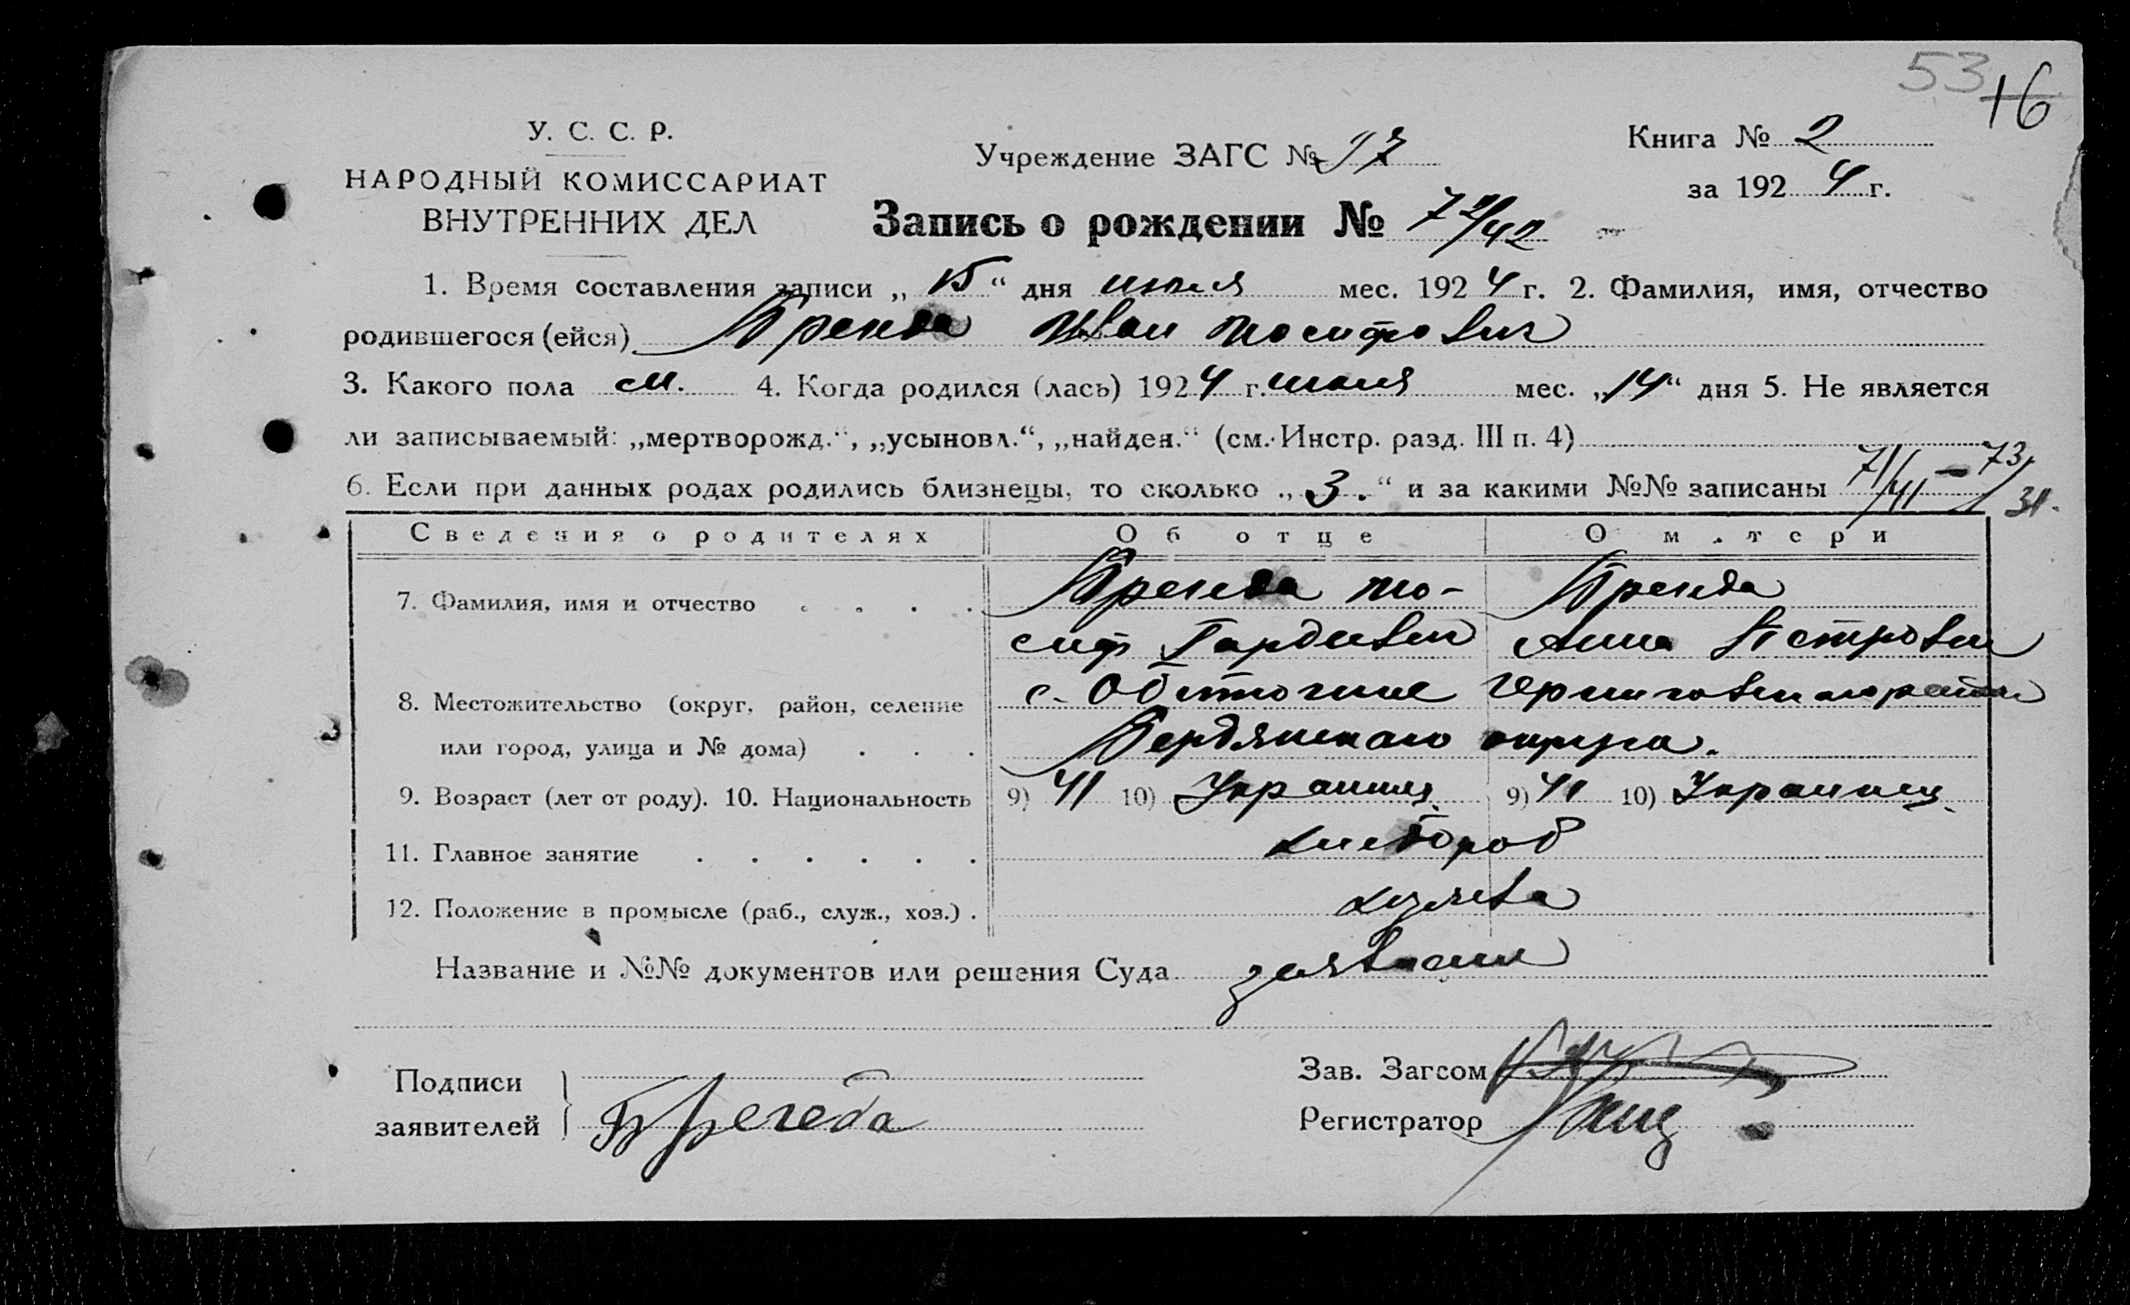 53 16
У. С. С. Р.
НАРОДНЫЙ КОМИССАРИАТ
ВНУТРЕННИХ ДЕЛ
Учреждение ЗАГС №
Книга № 2
за 1924 г.
Запись о рождении № 72/42
1. Время составления записи „15“ дня июля мес. 1924 г. 2. Фамилия, имя, отчество
родившегося (ейся) Иван Иосифович
3. Какого пола м. 4. Когда родился (лась) 1924 г. июля мес. „14“ дня 5. Не является
ли записываемый: „мертворожд.“, „усыновл.“, „найден.“ (см. Инстр. разд. III п. 4)
6. Если при данных родах родились близнецы, то сколько „3.“ и за какими №№ записаны 71/41 – 73/
Сведения о родителях Об отце О матери
7. Фамилия, имя и отчество Ио-
сиф Анна Петровн
8. Местожительство (округ, район, селение с. Обиточное
или город, улица и № дома) Бердянского округа.
9. Возраст (лет от роду). 10. Национальность 9) 41 10) Украинец 9) 41 10) Украинец
11. Главное занятие хлебороб
12. Положение в промысле (раб., служ., хоз.) хозяева
Название и №№ документов или решения Суда заявление
Подписи
заявителей
Зав. Загсом
Регистратор